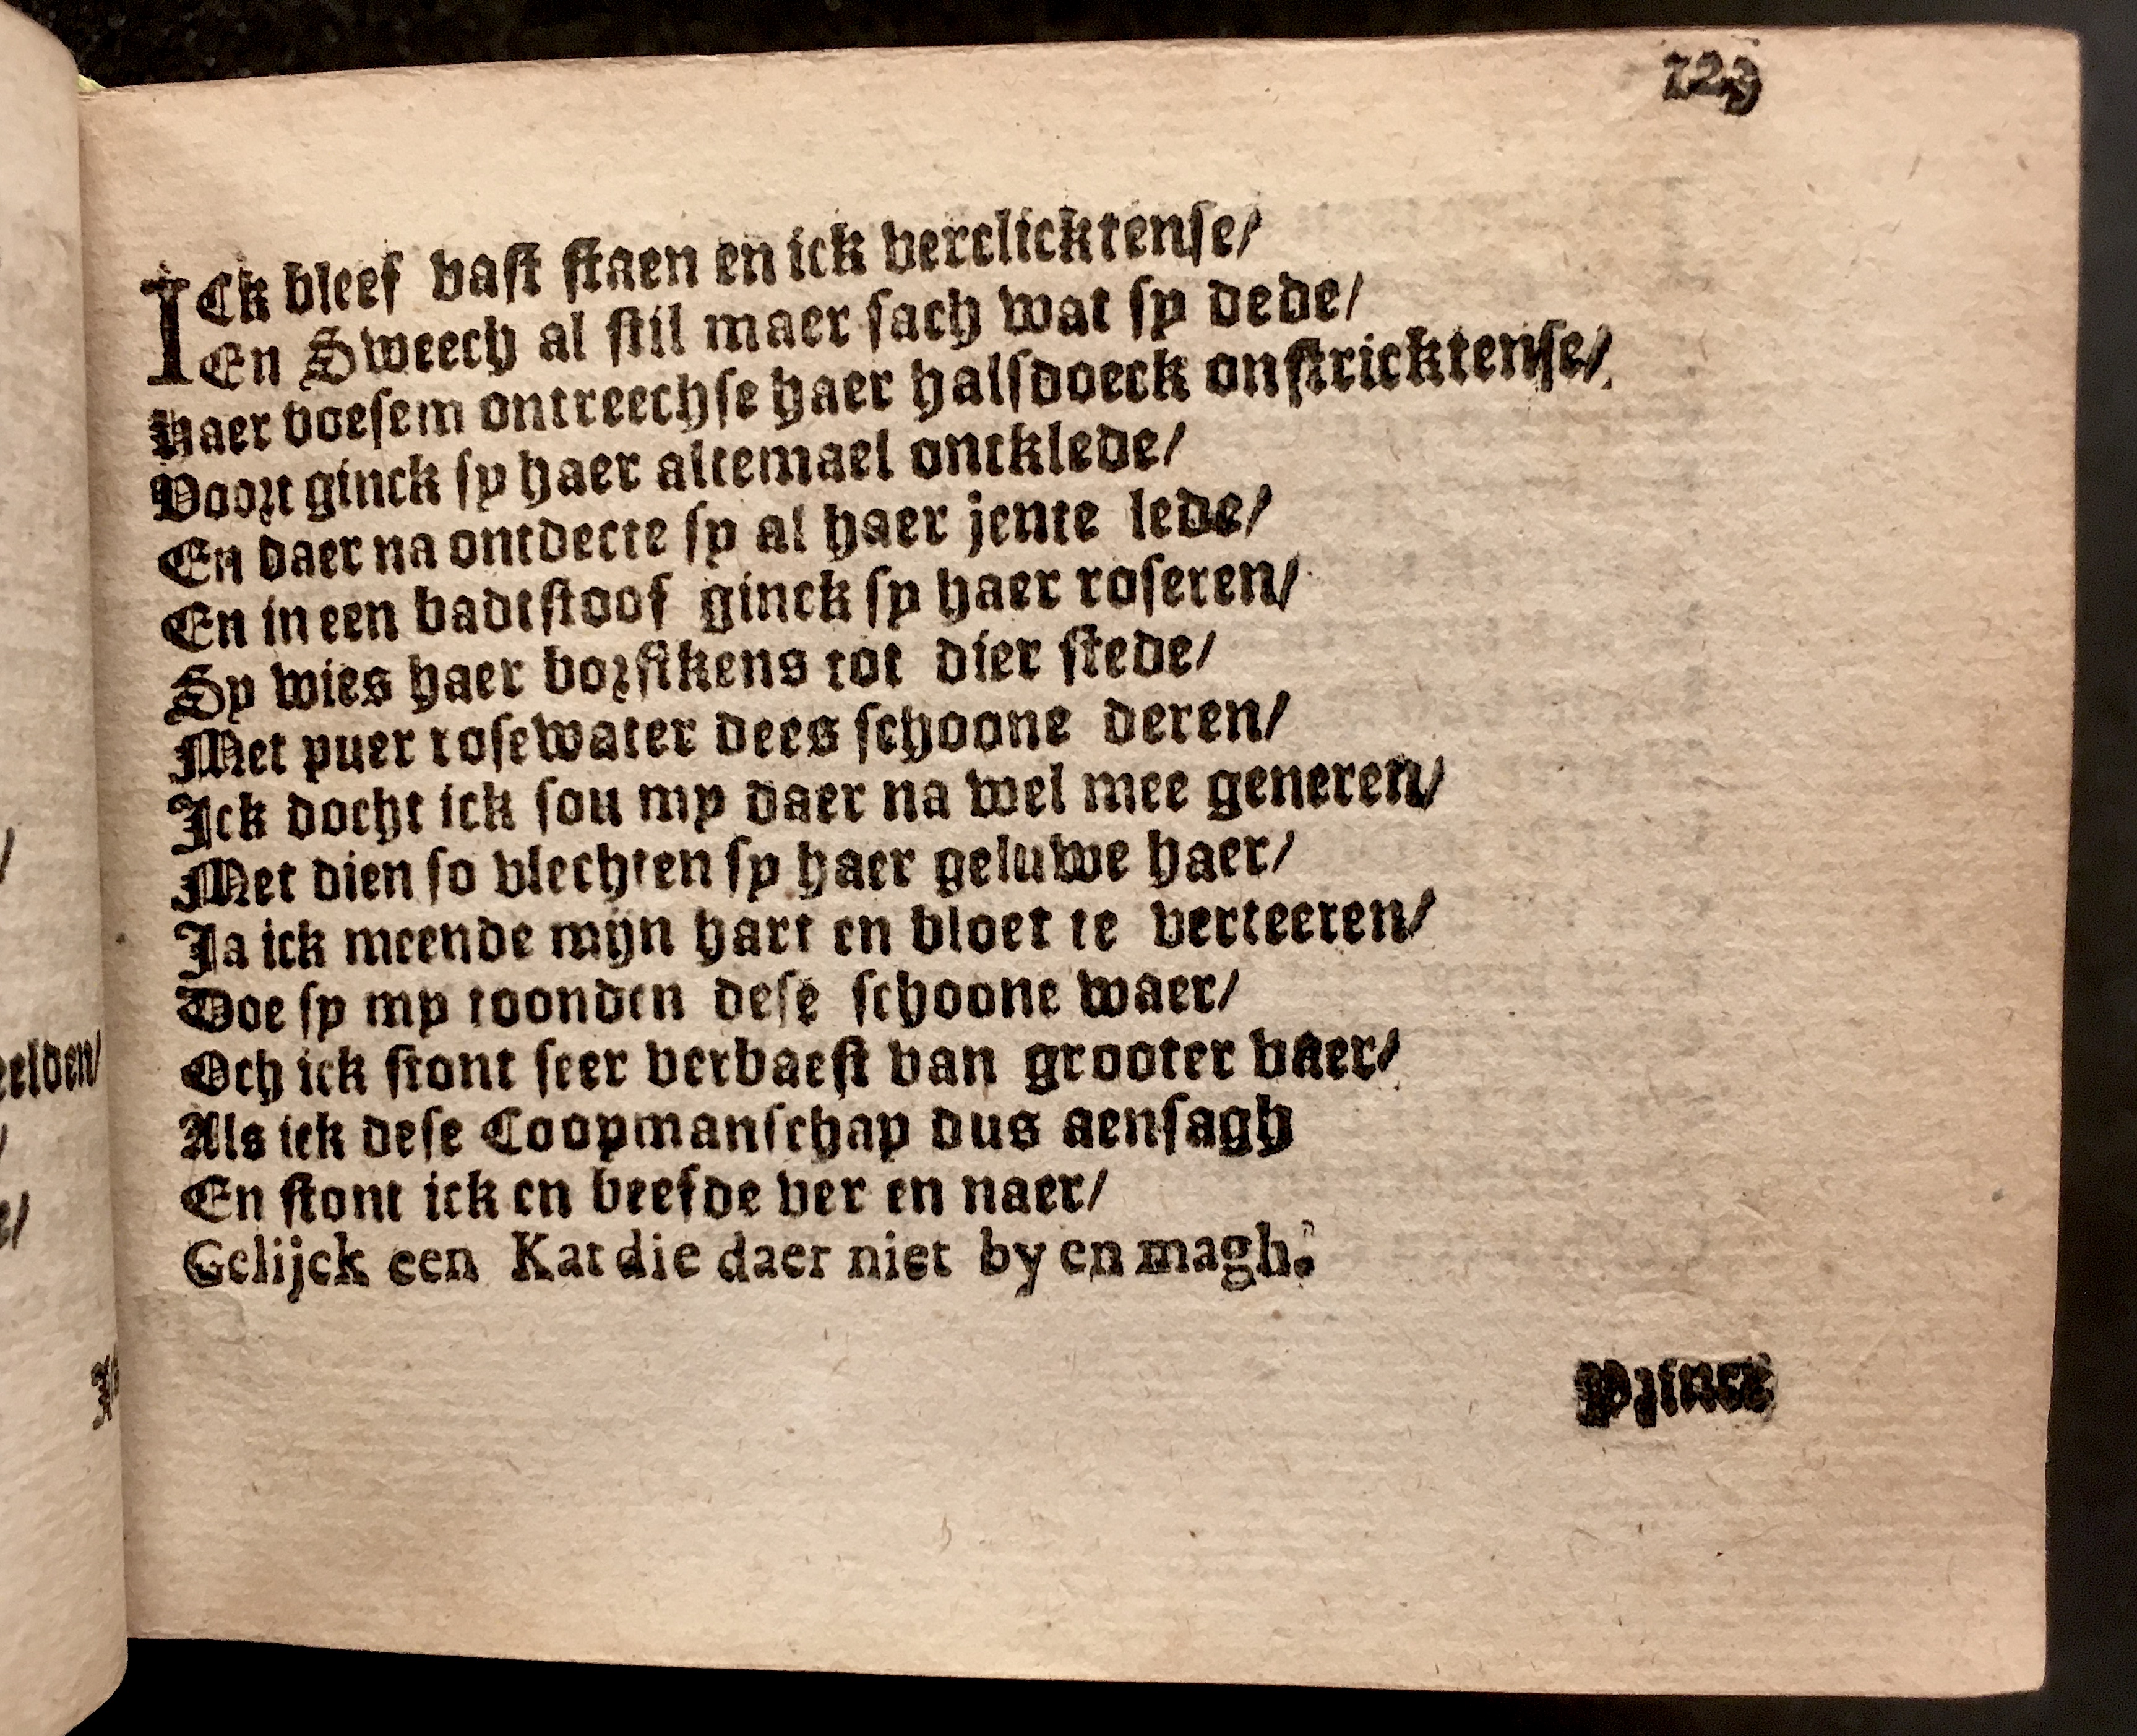 123
ICk bleef vast staen en ick verclicktense/
En Sweech al stil maer sach wat sy dede/
Haer boesem ontreechse haer halsdoeck onstricktense/
Voort ginck sy haer altemael ontklede/
En daer na ontdecte sy al haer jente lede/
En in een badtstoof ginck sy haer roseren/
Sy wies haer borstkens tot dier stede/
Met puer rosewater dees schoone deren/
Ick docht ick sou my daer na wel mee generen/
Met dien so vlechten sy haer geluwe haer/
Ja ick meende mijn hart en bloet te verteeren/
Doe sy my toonden dese schoone waer/
Och ick stont seer verbaest van grooter vaer/
Als ick dese Coopmanschap dus aensagh
En stont ick en beefde ver en naer/
Gelijck een Kat die daer niet by en magh.
Prince